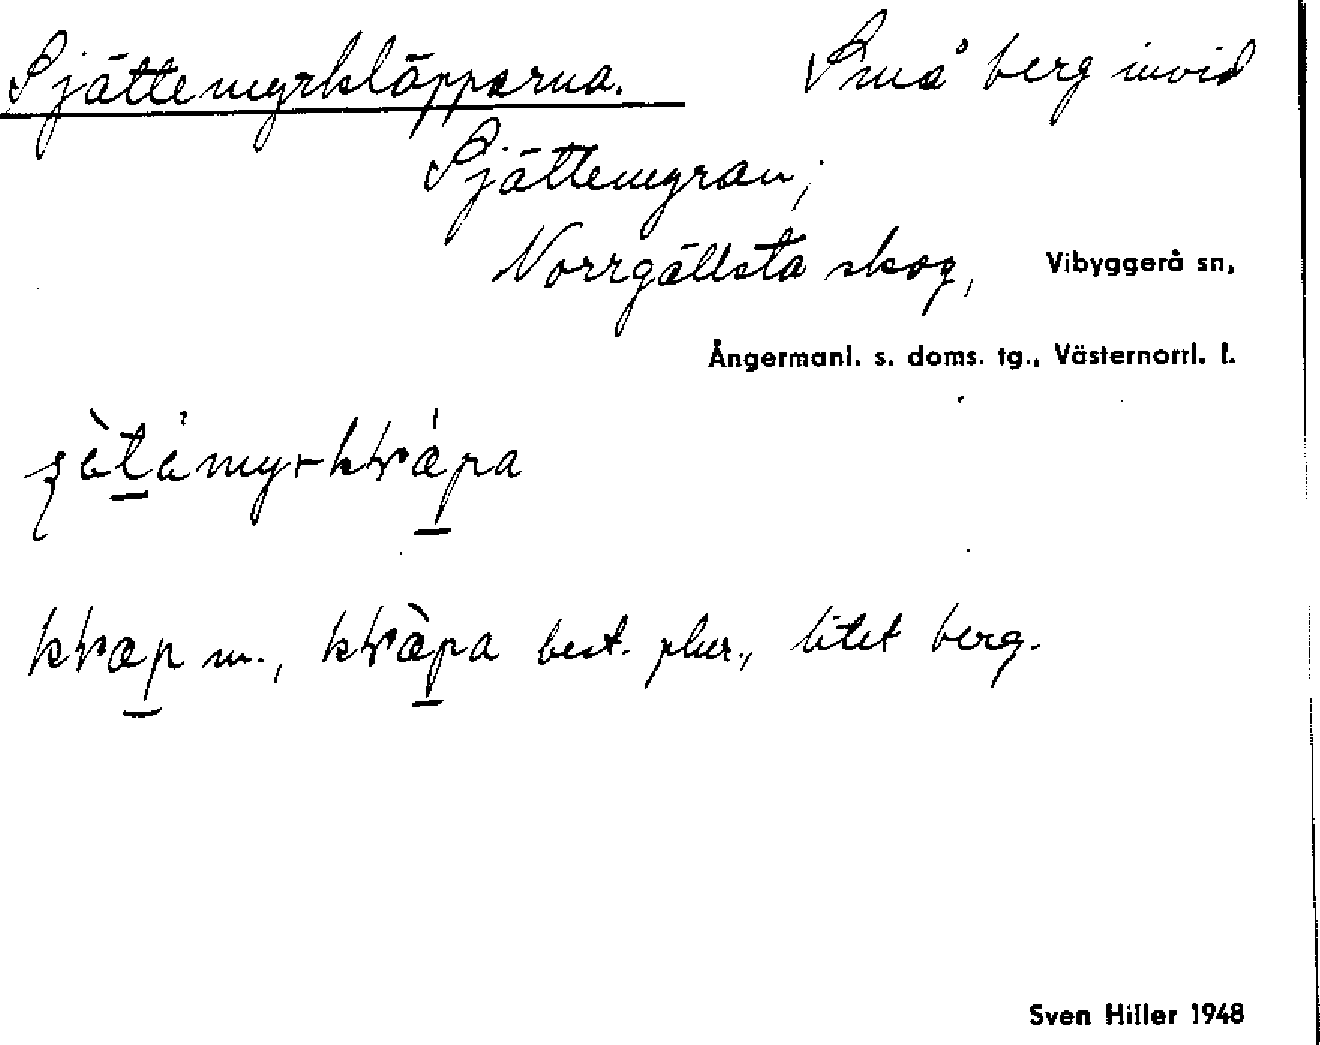 Sjättemyrkläpparna. Små berg invid
Sjättemyran;
Norrgällsta skog, Vibyggerå sn,
Ångermanl. s. doms. tg., Västernorrl. l.
m., best. plur., litet berg.
Sven Hiller 1948